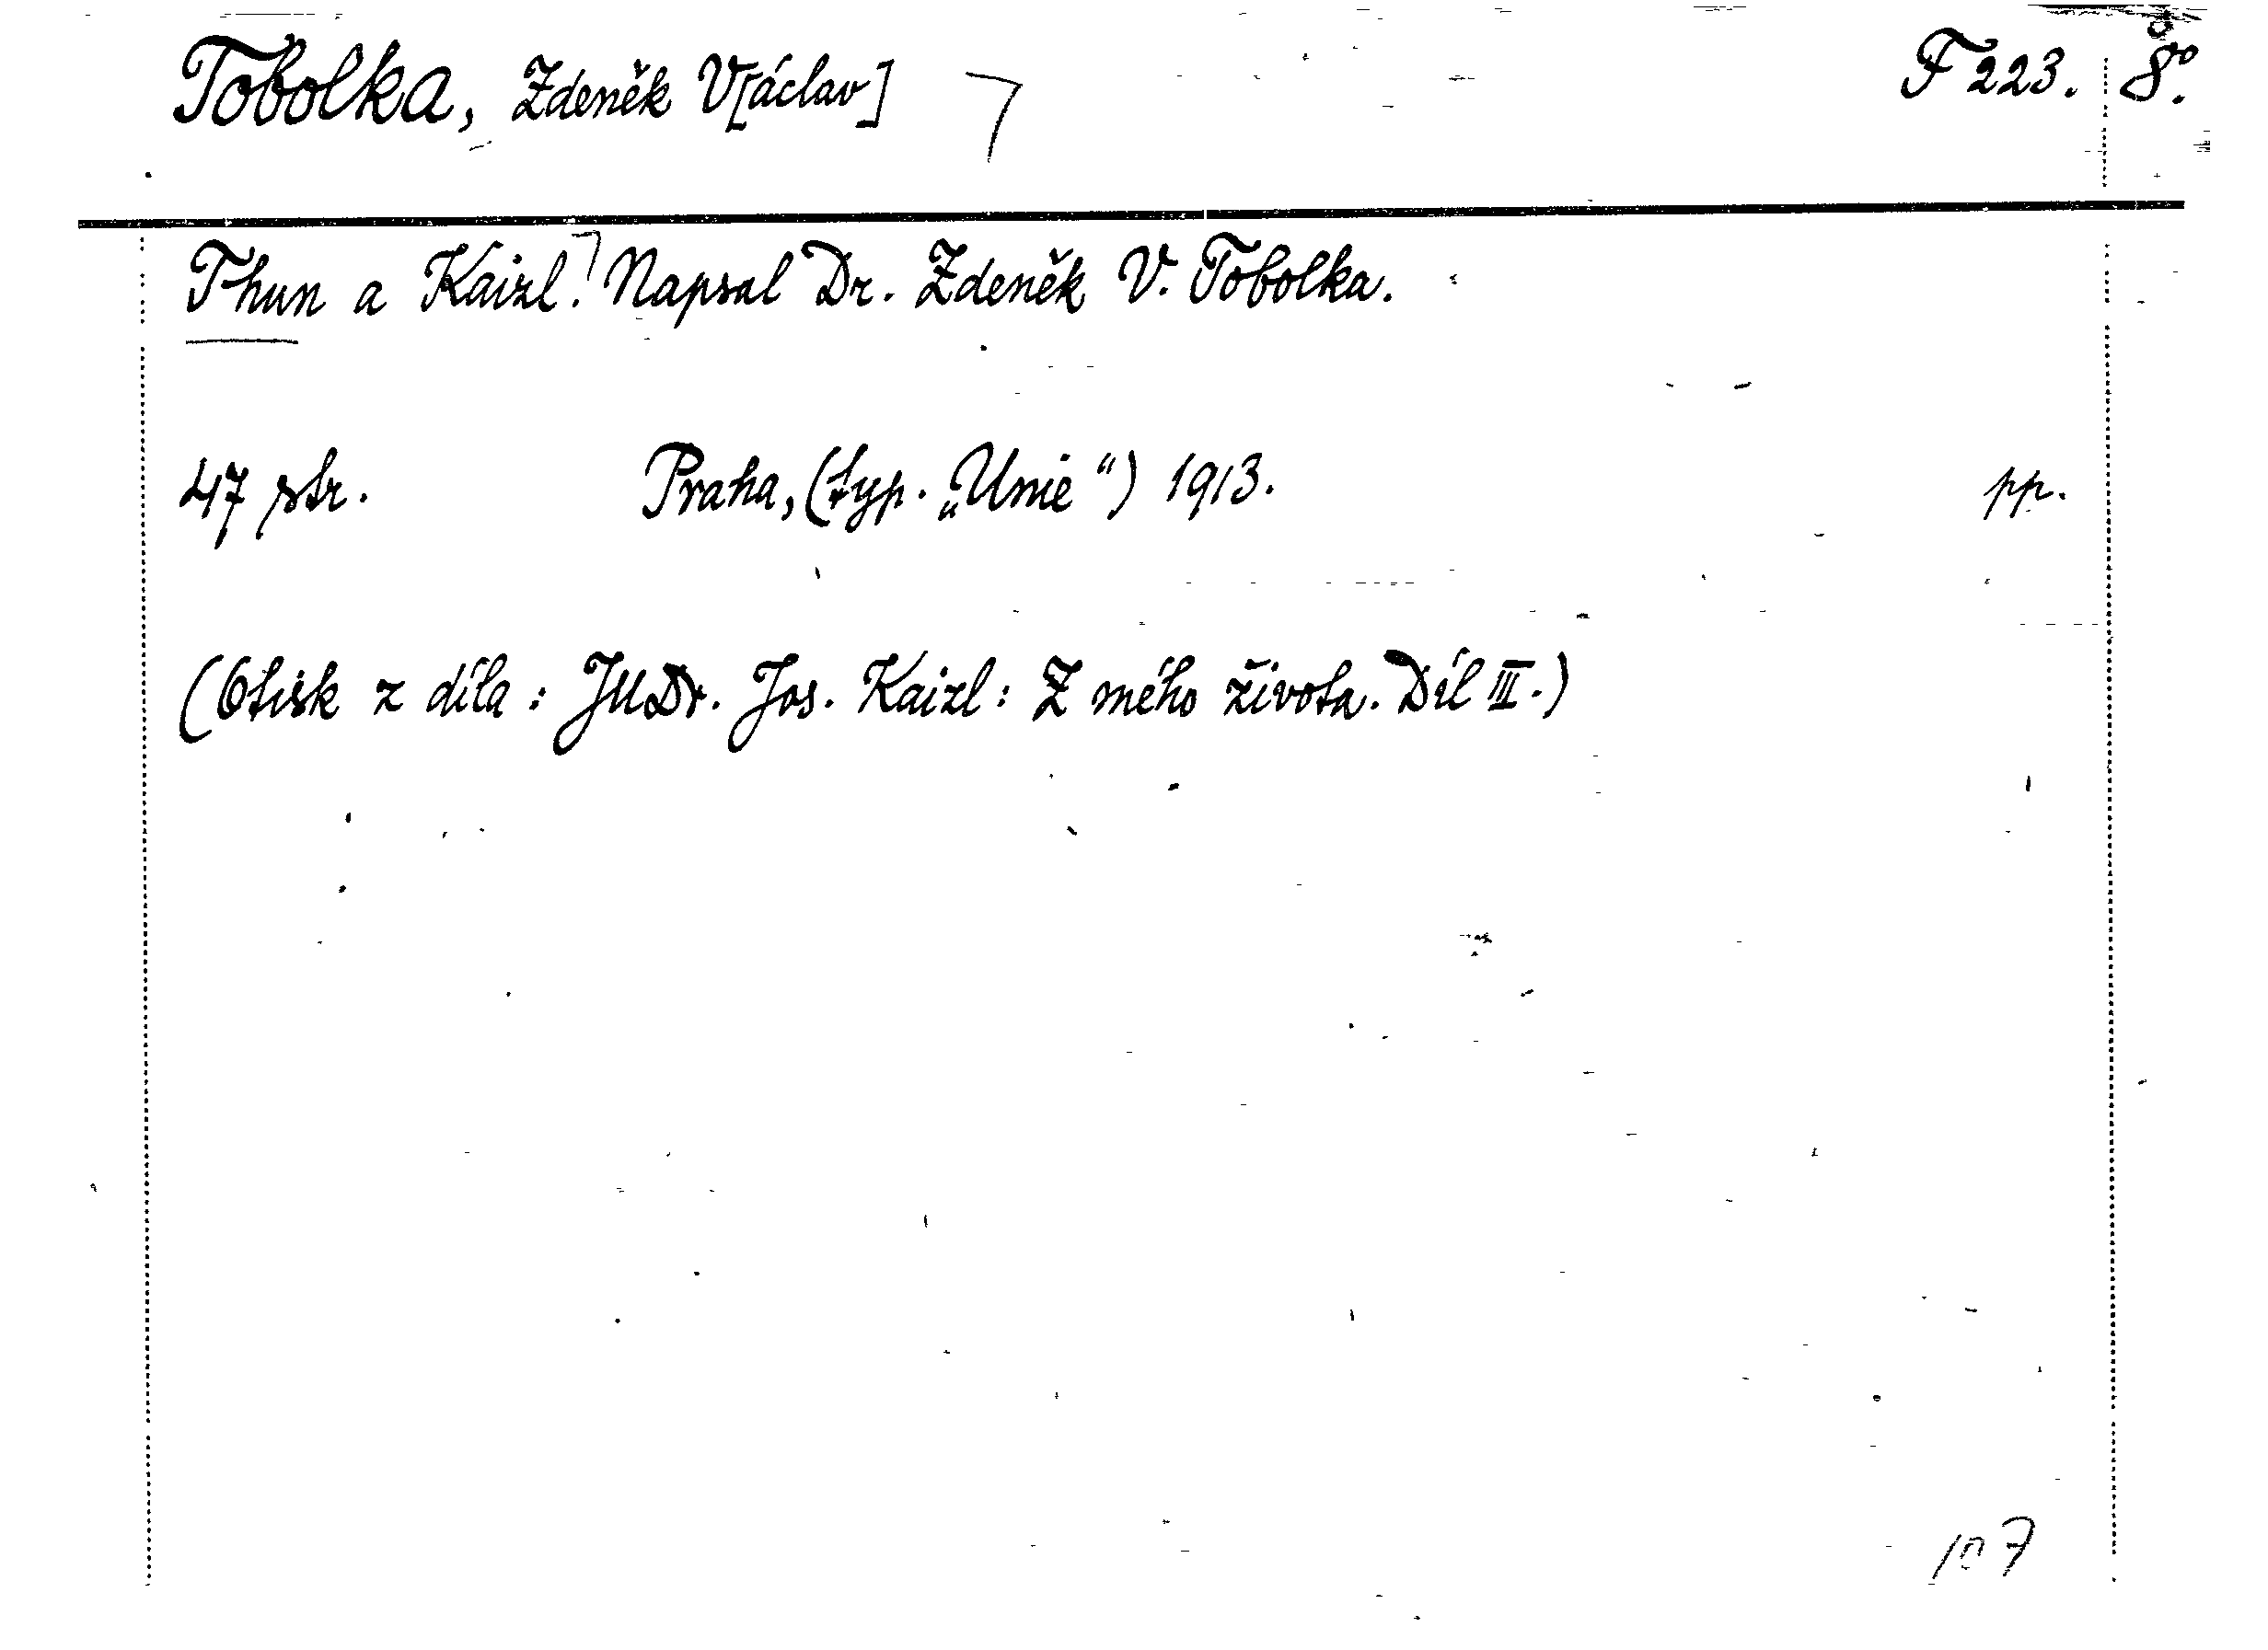 Tobolka, Zdeněk V[áclav] F 223. 8°.
Thun a Kaizl. Napsal Dr. Zdeněk V. Tobolka.
47 str. Praha, (typ. „Unie“) 1913. pp.
(Otisk z díla: JUDr. Jos. Kaizl: Z mého života. Díl III.)
107